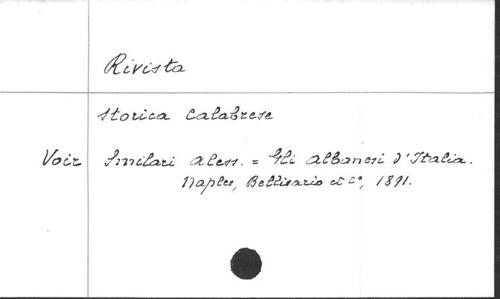 Rivista
Storica Calabrese
Voir Smilari Aless. = Gli Albanesi d'Italia.
Naples, Bellisario et Cº, 1891.